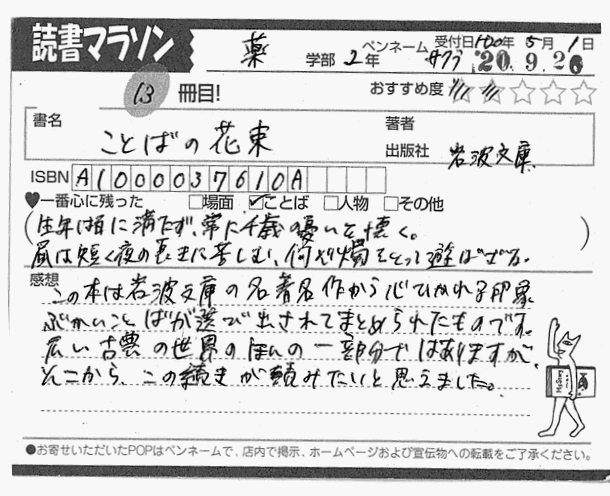 読書マラソン
薬 学部 2年 ペンネーム サクラ 受付日 100年 5月 1日
'20.9.26
13 冊目!
おすすめ度 ☆☆☆☆☆
書名 ことばの花束
著者
出版社 岩波文庫
ISBN A1000037610A
♥一番心に残った □場面 ☑ことば □人物 □その他
(生年は百に満たず、常に千歳の憂いを懐く。
昼は短く夜の長きに苦しむ、何ぞ燭をとって遊ばざる)
感想
この本は岩波文庫の名著名作から心ひかれる印象
ぶかいことばが選び出されてまとめられたものです。
広い古典の世界のほんの一部分ではありますが、
そこから、この続きが読みたいと思えました。
●お寄せいただいたPOPはペンネームで、店内で掲示、ホームページおよび宣伝物への転載をご了承ください。